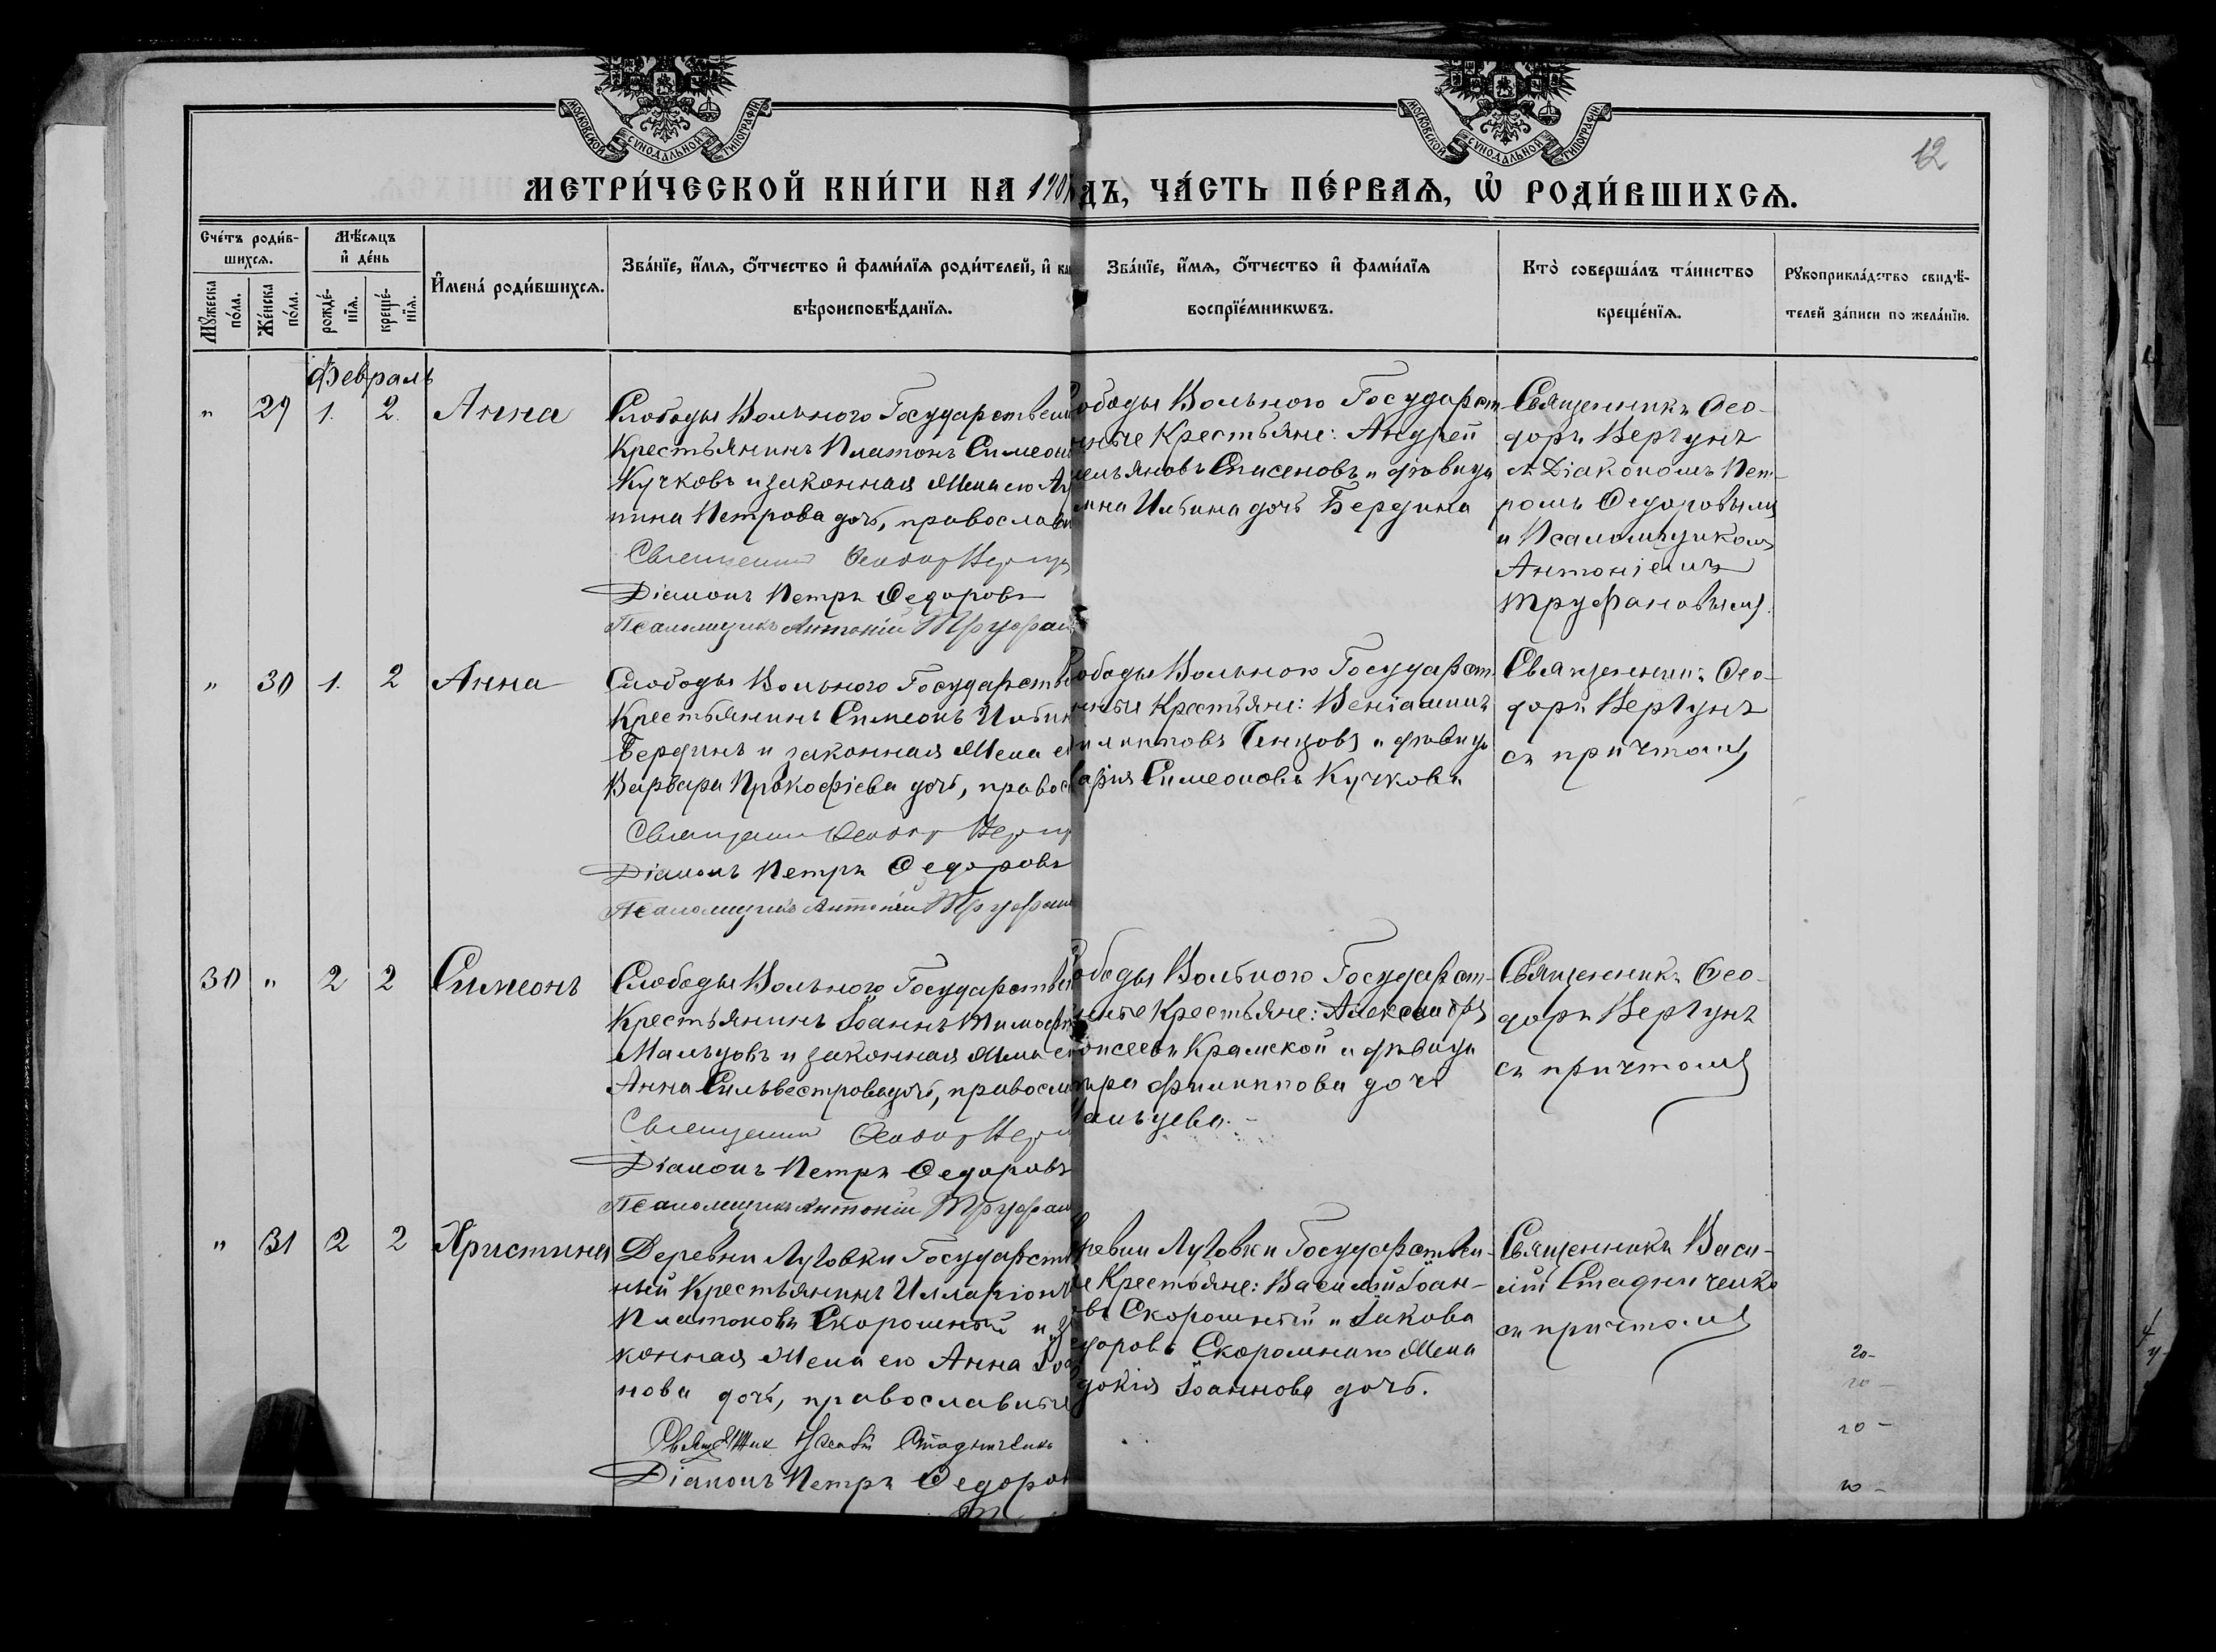 МОСКОВСКОЙ СѴНОДАЛЬНОЙ ТИПОГРАФІИ
МОСКОВСКОЙ СѴНОДАЛЬНОЙ ТИПОГРАФІИ
12
МЕТРИ́ЧЕСКОЙ КНИ́ГИ НА 190 ДЪ, ЧА́СТЬ ПЕ́РВАѦ, Ѡ҆ РОДИ́ВШИХСѦ.
Сче́тъ роди́в-
шихсѧ.
Мꙋ́жеска по́ла.
Же́нска по́ла.
Мѣ́сѧцъ
и҆ де́нь
рожде́-нїѧ.
креще́-нїѧ.
И҆мена̀ роди́вшихсѧ.
Зва́нїе, и҆́мѧ, ѻ҆́тчество и҆ фами́лїѧ роди́телей, и҆ ка
вѣроисповѣ́данїѧ.
Зва́нїе, и҆́мѧ, ѻ҆́тчество и҆ фами́лїѧ
воспрїе́мникѡвъ.
Кто̀ соверша́лъ та́инство
креще́нїѧ.
Рꙋкоприкла́дство свидѣ́-
телей за́писи по жела́нїю.
Февраль
" 29 1. 2. Анна
Слободы Вольного Государствен
Крестьянинъ Платонъ Симеон
Кучковъ и законная жена его Аг
пина Петрова дочь, православн
Священникъ Феодор Вергун
Діаконъ Петръ Ѳедоровъ
Псаломщикъ Антоній Труфан
ободы Вольного Государст-
нные Крестьяне: Андрей
мельяновъ Спасеновъ и дѣвица
мна Ильина дочь Бердина
Священникъ Ѳео-
доръ Вергунъ
съ Діакономъ Пет-
ромъ Ѳедоровымъ
и Псаломщикомъ
Антоніемъ
Труфановымъ.
" 30 1. 2 Анна
Слободы Вольного Государстве
Крестьянинъ Симеонъ Ильин
Бердинъ и законная жена е
Варвара Прокофіева дочь, правос
Священник Феодор Вергу
Діаконъ Петръ Ѳедоровъ
Псаломщикъ Антоній Труфан
ободы Вольного Государст-
нные Крестьяне: Веніаминъ
илипповъ Ченцовъ и дѣвица
арія Симеонова Кучкова
Священникъ Ѳео-
доръ Вергунъ
съ причтомъ
30 " 2 2 Симеонъ
Слободы Вольного Государствен
Крестьянинъ Іоаннъ Тимофе
Мальцовъ и законная жена е
Анна Сильвестрова дочь, правосл
Священник Феодор Верг
Діаконъ Петръ Ѳедоровъ
Псаломщикъ Антоній Труфан
ободы Вольного Государст-
нные Крестьяне: Александръ
оисеевъ Крамской и дѣвица
ира Филиппова дочь
альцева.-
Священникъ Ѳео-
доръ Вергунъ
съ причтомъ
" 31 2 2 Христина
Деревни Луговки Государств
ный Крестьянинъ Илларіонъ
Платоновъ Скоромный и з
конная жена его Анна Іоа
нова дочь, православные
Діаконъ Петръ Ѳедоров
ревни Луговки Государствен-
е Крестьяне: Василій Іоан-
овъ Скоромный и Іакова
едорова Скоромнаго жена
докія Іоаннова дочь.
Священникъ Васи-
лій Стадниченко
съ причтомъ
20-
20-
20-
20-